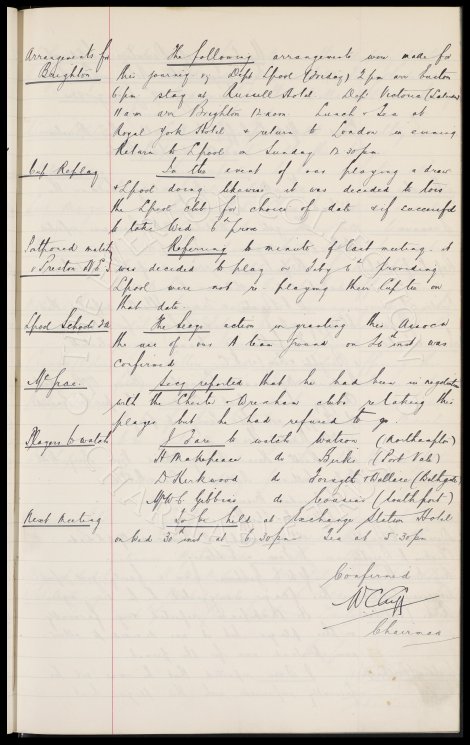 Arrangements for Brighton
The following arrangements were made for
this journey vz Dept Lpool (Friday) 2 pm arr Euston
6 pm stay at Russell Hotel. Dept Victoria (Saturday)
11 am arr Brighton 12 noon. Lunch & Tea at
Royal York Hotel & return to London in evening
Return to Lpool on Sunday 12.30 pm
Cup Replay
In the event of our playing a draw
& Lpool doing likewise it was decided to toss
the Lpool club for choice of date & if successful
to take Wed 6th prox
Postponed match v Preston N.E.
Referring to minute of last meeting. it
was decided to play on Feby 6th providing
Lpool were not replaying their Cup tie on
that date.
Lpool Schools
The Secys action in granting this Associa
the use of our A team ground on 26th inst was
confirmed
Secy reported that he had been in negotiation
with the Chester & Wrexham clubs relating this
player but he had refused to go.
Players to watch
to watch Watson (Northampton)
H Makepeace do (Port Vale)
D Kirkwood do Forsyth & Wallace (Bathgate)
Mr W C Gibbins do Cousins (Southport)
Next Meeting
To be held at Exchange Station Hotel
on Wed 30th inst at 6.30 pm Tea at 5.30 pm
Confirmed
W C Cuff
Chairman